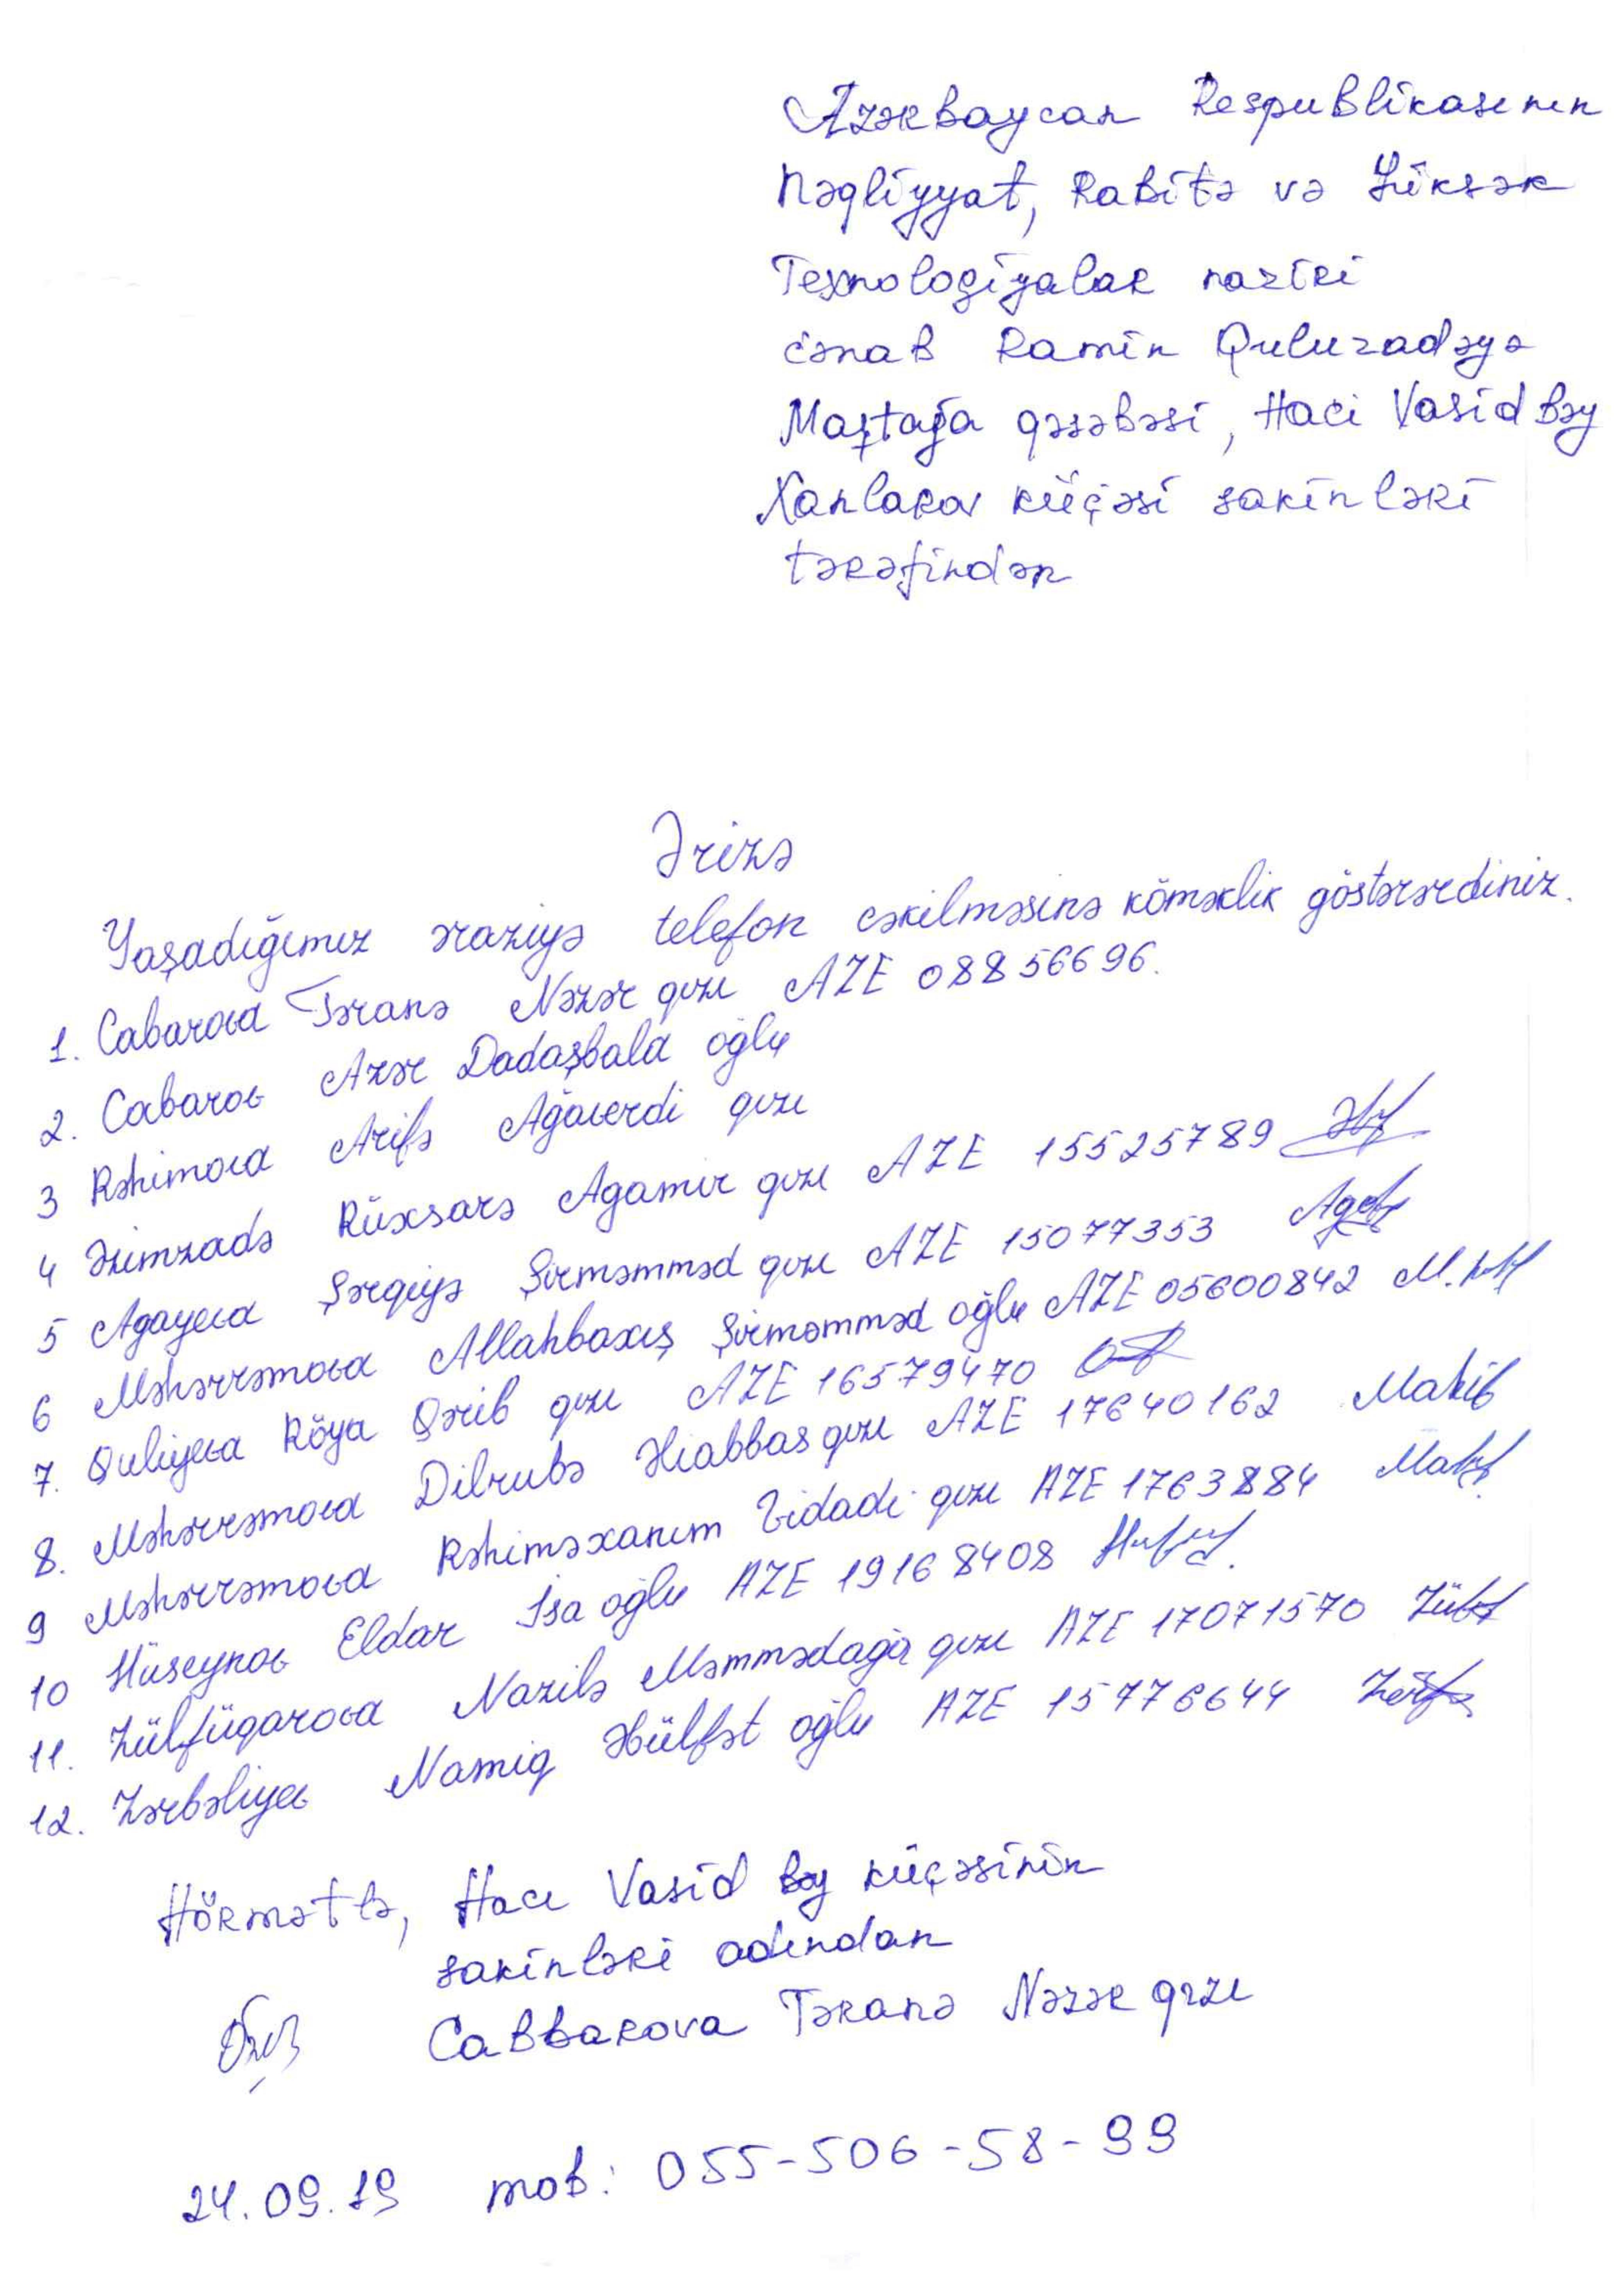 Azərbaycan Respublikasının
Nəqliyyat, Rabitə və Yüksək
Texnologiyalar naziri
cənab Ramin Quluzadəyə
Maştağa qəsəbəsi, Haci Vasid bəy
Xanlarov küçəsi sakinləri
tərəfindən
Ərizə
Yaşadığımız əraziyə telefon cəkilməsinə köməklik göstərərdiniz.
1. Cabarova Təranə Nəzər qızı AZE 08856696.
2. Cabarov Azər Dadaşbala oğlu
3 Rəhimova Arifə Ağaverdi qızı
4 Əzimzadə Rüxsarə Agamir qızı AZE 15525789
5 Agayeva Şərqiyə Şirməmməd qızı AZE 15077353
6 Məhərrəmova Allahbaxış Şirməmməd oğlu AZE 05600842
7. Quliyeva Röya Qərib qızı AZE 16579470
8. Məhərrəmova Dilrubə Əliabbas qızı AZE 17640162
9 Məhərrəmova Rəhiməxanım Vidadi qızı AZE 1763884
10 Hüseynov Eldar İsa oğlu AZE 19168408
11. Zülfüqarova Nazilə Məmmədağa qızı AZE 17071570
12. Zərbəliyev Namiq Əbülfət oğlu AZE 15776644
Hörmətlə, Hacı Vasid bəy küçəsinin
sakinləri adından
Cabbarova Təranə Nəzər qızı
24.09.19 mob: 055-506-58-99